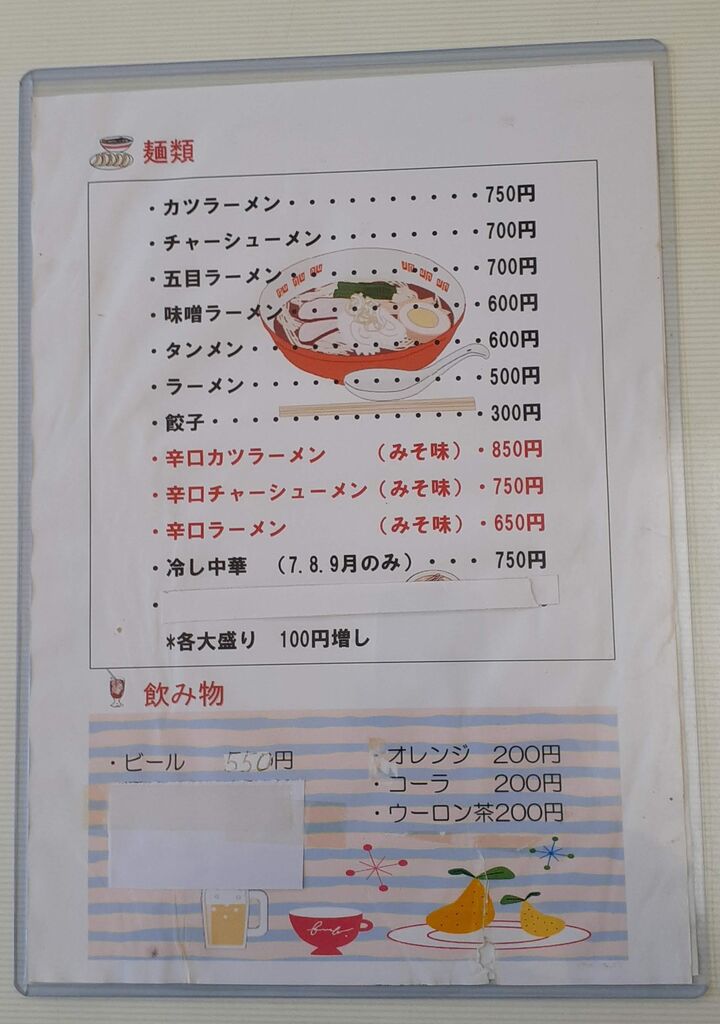 麺類
・カツラーメン・・・・・・・・・・750円
・チャーシューメン・・・・・・・・700円
・五目ラーメン・・・・・・・・・・700円
・味噌ラーメン・・・・・・・・・・600円
・タンメン・・・・・・・・・・・・600円
・ラーメン・・・・・・・・・・・・500円
・餃子・・・・・・・・・・・・・・300円
・辛口カツラーメン （みそ味）・850円
・辛口チャーシューメン（みそ味）・750円
・辛口ラーメン （みそ味）・650円
・冷し中華 （7.8.9月のみ）・・・ 750円
・
*各大盛り 100円増し
飲み物
・ビール 550円
オレンジ 200円
・コーラ 200円
・ウーロン茶200円